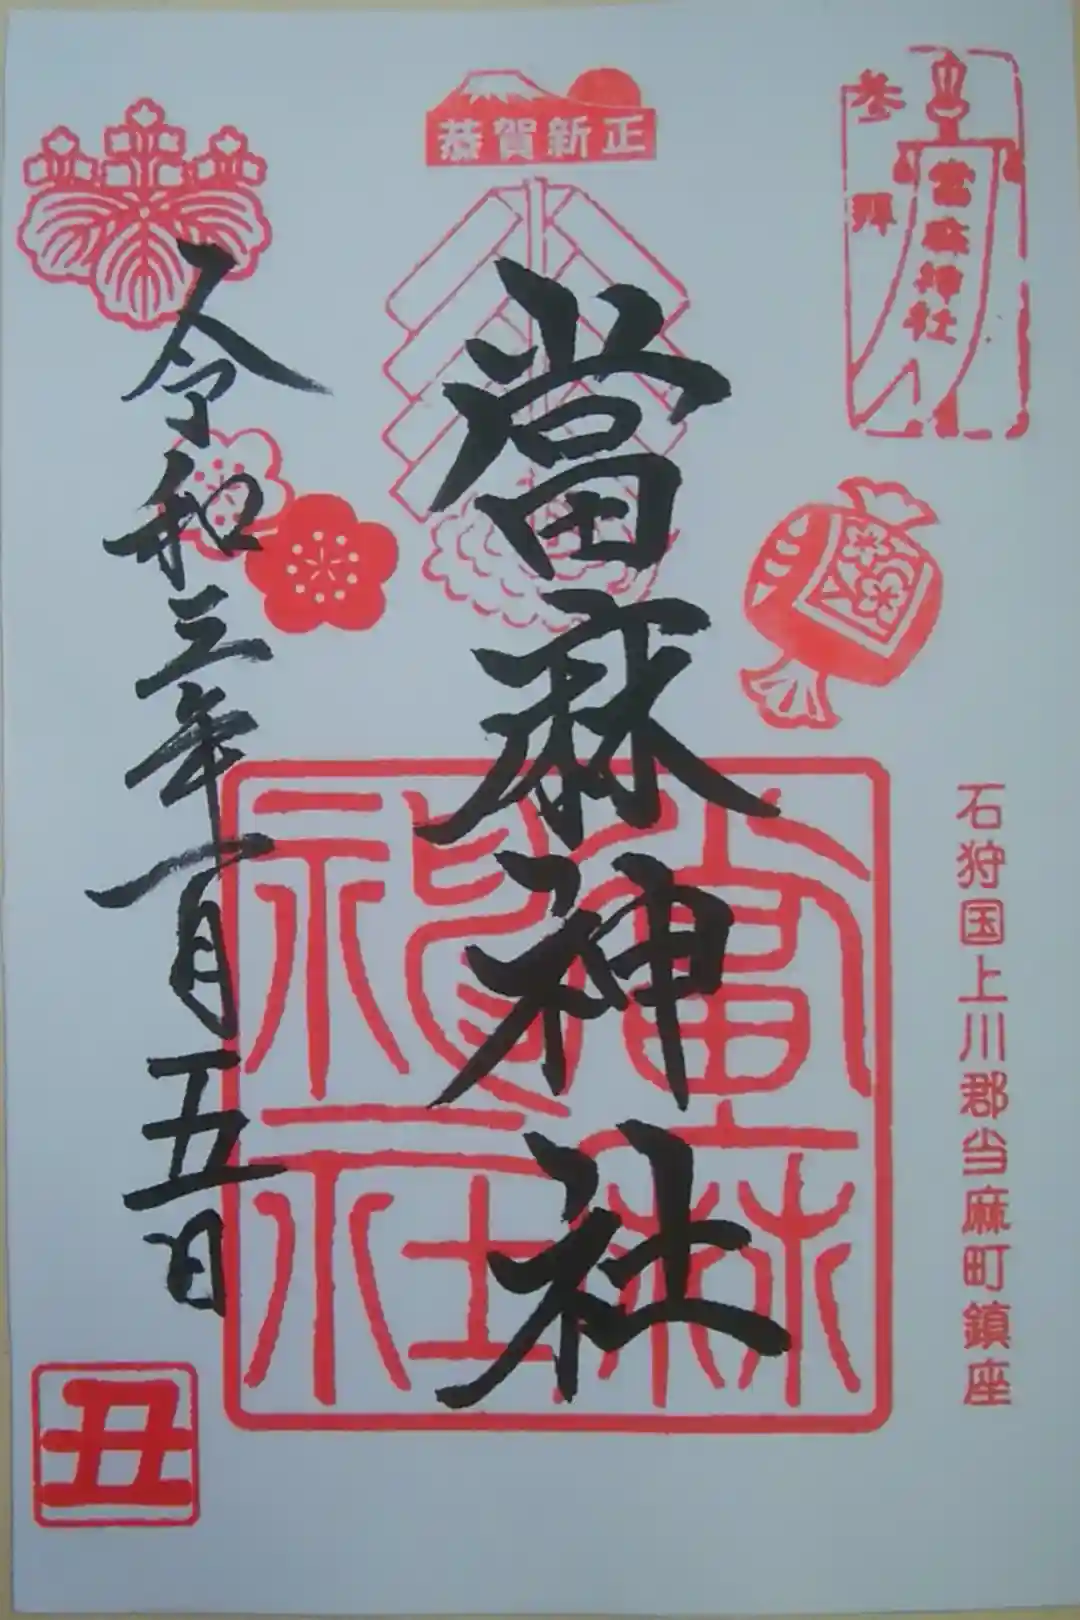 恭賀新正
參拜
當麻神社
石狩国上川郡当麻町鎮座
當麻神社
當麻神社
令和三年一月五日
丑